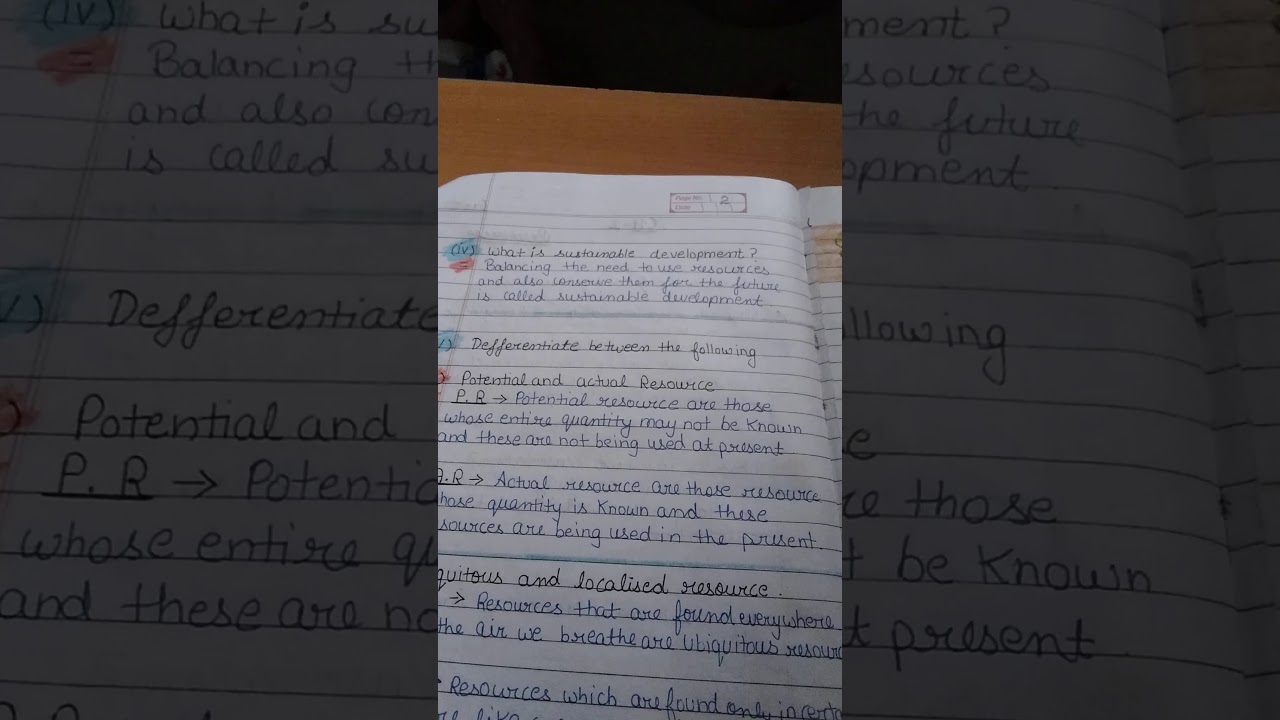 Page No. 2
Date
(iv) What is sustainable development?
Balancing the need to use resources
and also conserve them for the future
is called sustainable development
V) Defferentiate between the following
) Potential and actual Resource
P. R → Potential resource are those
whose entire quantity may not be Known
and these are not being used at present
A.R → Actual resource are those resource
hose quantity is Known and these
sources are being used in the present.
quitous and localised resource.
→ Resources that are found everywhere
the air we breathe are Ubiquitous resour
Resources which are found only in certa
re like